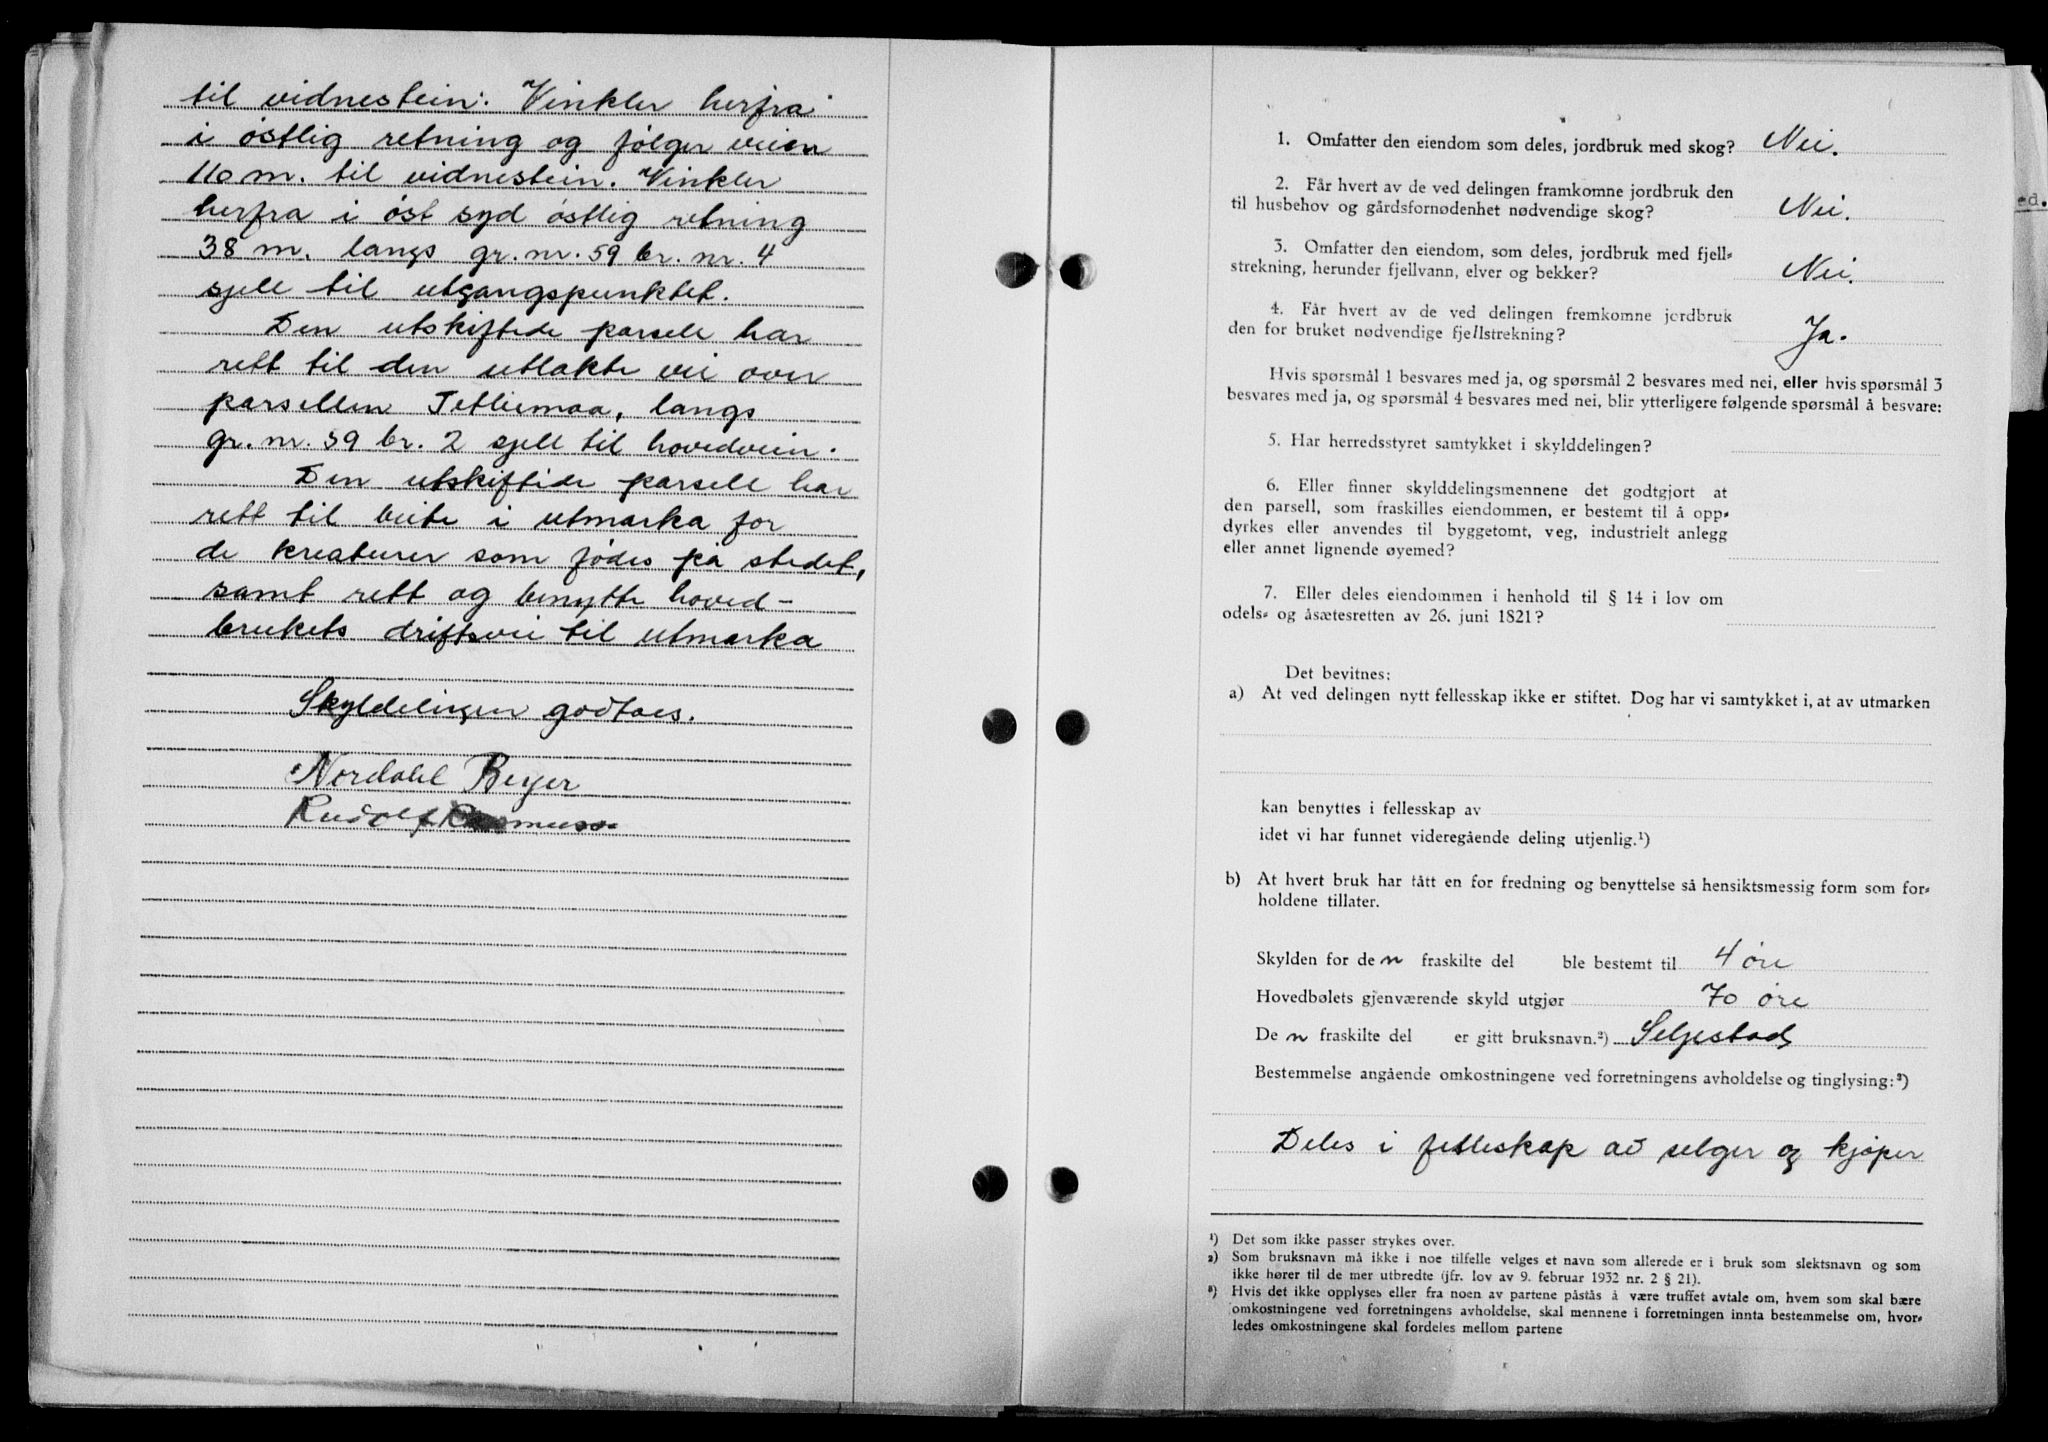 til vidnestein. Vinkler herfra
i østlig retning og følger veien
116 m. til vidnestein. Vinkler
herfra i øst syd østlig retning
38 m. langs gr. nr. 59 br. nr. 4
sjell til utgangspunktet.
Den utskiftede parsell har
rett til den utlakte vei over
parsellen langs
gr. nr. 59 br. 2 sjell til hovedveien.
Den utskiftede parsell har
rett til beite i utmarka for
de kreaturer som fødes på stedet,
samt rett og benytte hoved-
brukets driftsvei til utmarka
Skyldelingen godtaes.
Nordahl Beyer
Rudolf Rasmuss
1. Omfatter den eiendom som deles, jordbruk med skog? Nei.
2. Får hvert av de ved delingen framkomne jordbruk den
til husbehov og gårdsfornødenhet nødvendige skog? Nei.
ed.
3. Omfatter den eiendom, som deles, jordbruk med fjell=
strekning, herunder fjellvann, elver og bekker? Nei.
4. Får hvert av de ved delingen fremkomne jordbruk
den for bruket nødvendige fjellstrekning? Ja.
Hvis spørsmål 1 besvares med ja, og spørsmål 2 besvares med nei, eller hvis spørsmål 3
besvares med ja, og spørsmål 4 besvares med nei, blir ytterligere følgende spørsmål å besvare:
5. Har herredsstyret samtykket i skylddelingen?
6. Eller finner skylddelingsmennene det godtgjort at
den parsell, som fraskilles eiendommen, er bestemt til å opp=
dyrkes eller anvendes til byggetomt, veg, industrielt anlegg
eller annet lignende øyemed?
7. Eller deles eiendommen i henhold til § 14 i lov om
odels= og åsætesretten av 26. juni 1821?
Det bevitnes:
a) At ved delingen nytt fellesskap ikke er stiftet. Dog har vi samtykket i, at av utmarken
kan benyttes i fellesskap av
idet vi har funnet videregående deling utjenlig.¹)
b) At hvert bruk har fått en for fredning og benyttelse så hensiktsmessig form som for=
holdene tillater.
Skylden for den fraskilte del ble bestemt til 4 øre
Hovedbølets gjenværende skyld utgjør 70 øre
Den fraskilte del er gitt bruksnavn.²) Seljestad
Bestemmelse angående omkostningene ved forretningens avholdelse og tinglysing:³)
Deles i felleskap av selger og kjøper
¹) Det som ikke passer strykes over.
²) Som bruksnavn må ikke i noe tilfelle velges et navn som allerede er i bruk som slektsnavn og som
ikke hører til de mer utbredte (jfr. lov av 9. februar 1932 nr. 2 § 21).
³) Hvis det ikke opplyses eller fra noen av partene påstås å være truffet avtale om, hvem som skal bære
omkostningene ved forretningens avholdelse, skal mennene i forretningen innta bestemmelse om, hvor=
ledes omkostningene skal fordeles mellom partene